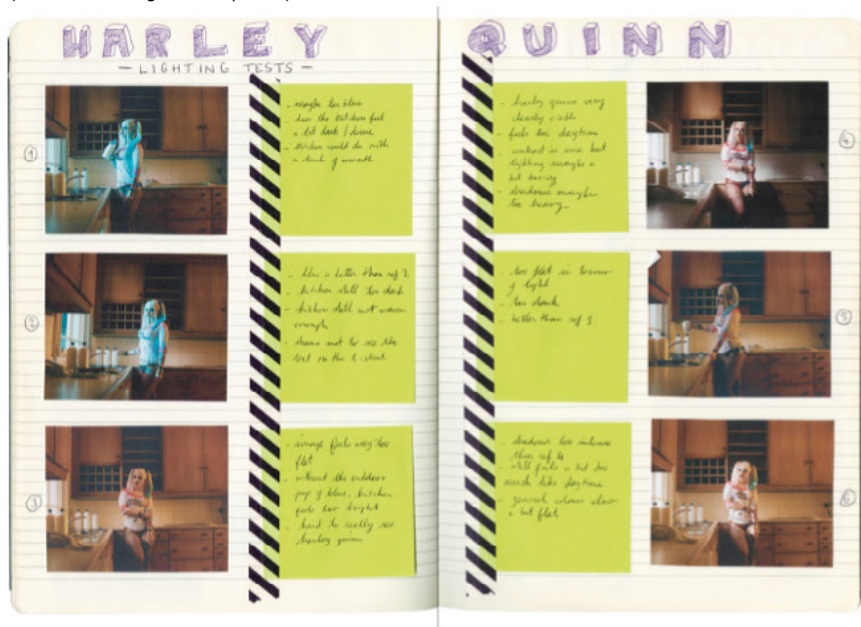 HARLEY QUINN
- LIGHTING TESTS -
1
- maybe too blue
- does the kitchen feel
a bit dark /
- kitchen could do with
a touch of warmth
2
- blue is better than ref 1.
- kitchen still too dark
- kitchen still not warm
enough
- shame not to see the
text on the t-shirt
3
- image feels way too
flat
- without the outdoor
pop of blue, kitchen
feels too bright
- hard to really see
harley quinn
4
- harley quinn very
clearly visible
- feels too daytime
- contrast is nice but
lighting maybe a
bit boring
- shadows maybe
too heavy
5
- too flat in terms
of light
- too dark
- better than ref 3.
6
- shadows less intense
than ref 4
- still feels a bit too
much like daytime
- general colours also
a bit flat